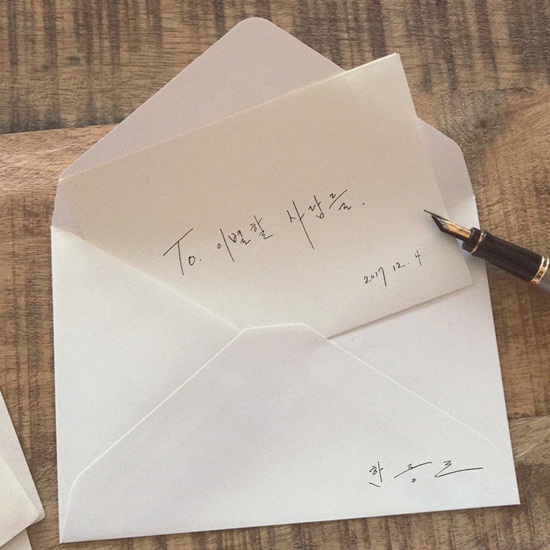 To. 이별할 사람들.
2017 12. 4